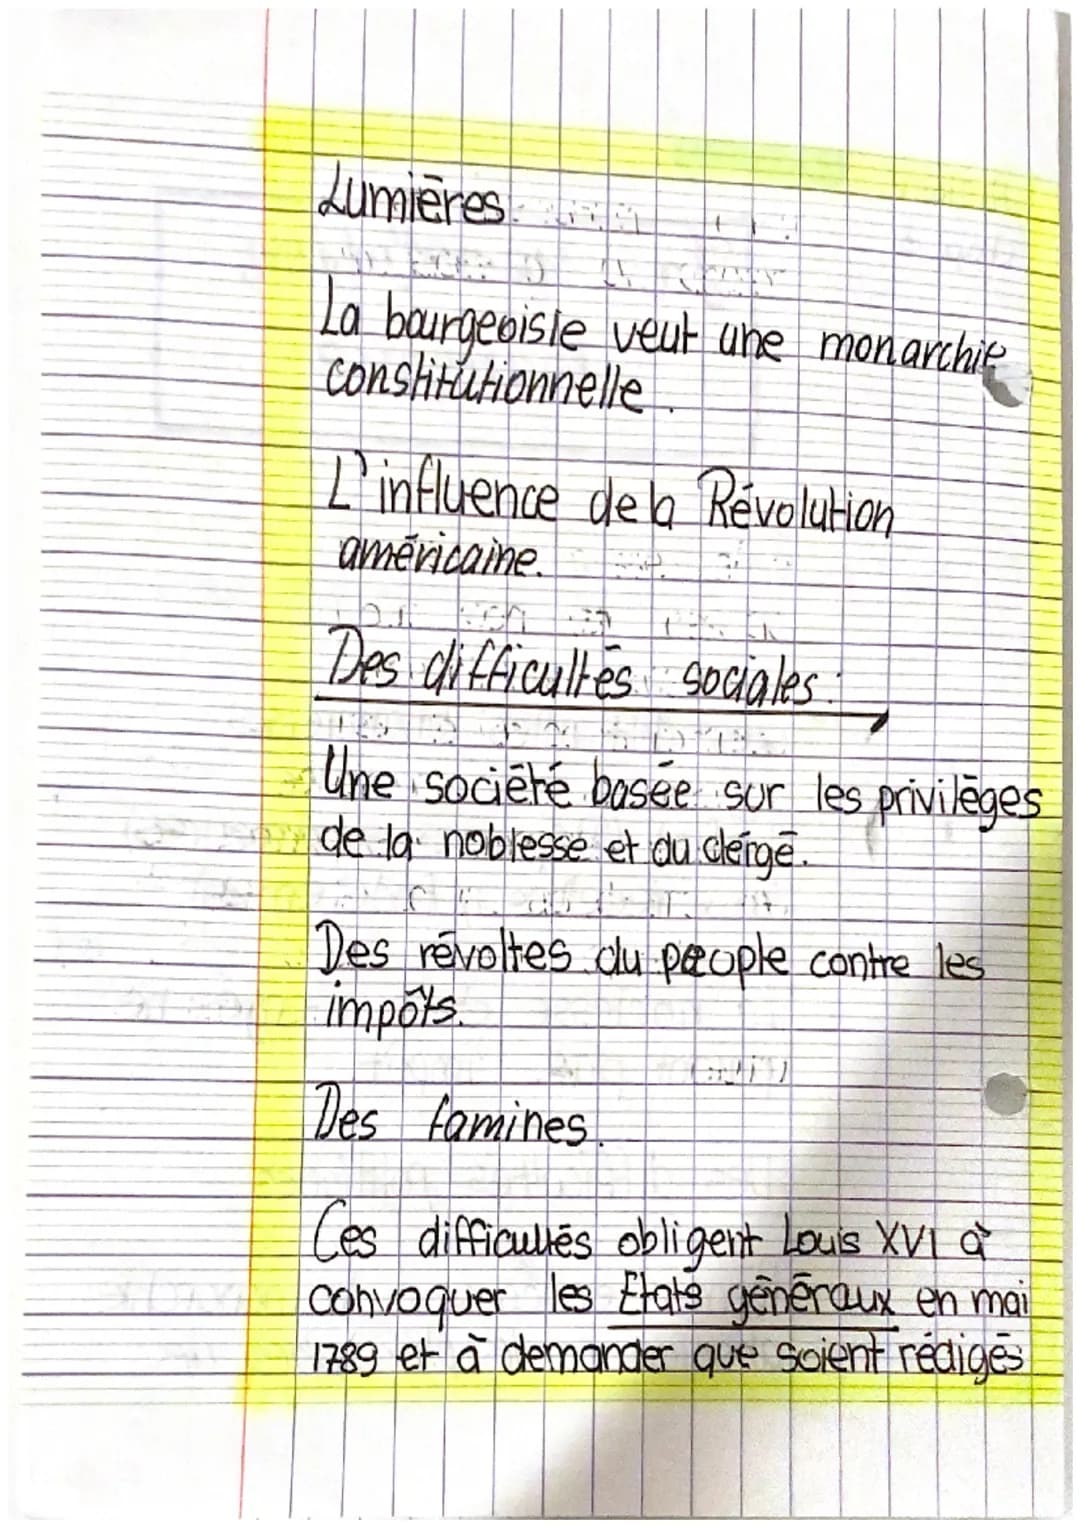 Lumières.
La bourgeoisie veut une monarchie
constitutionnelle.
L'influence de la Révolution
américaine.
Des difficultés sociales:
Une société basée sur les privilèges
de la noblesse et du clergé.
Des révoltes du peuple contre les
impôts.
Des famines.
Ces difficultés obligent Louis XVI à
convoquer les Etats généraux en mai
1789 et à demander que soient rédigés